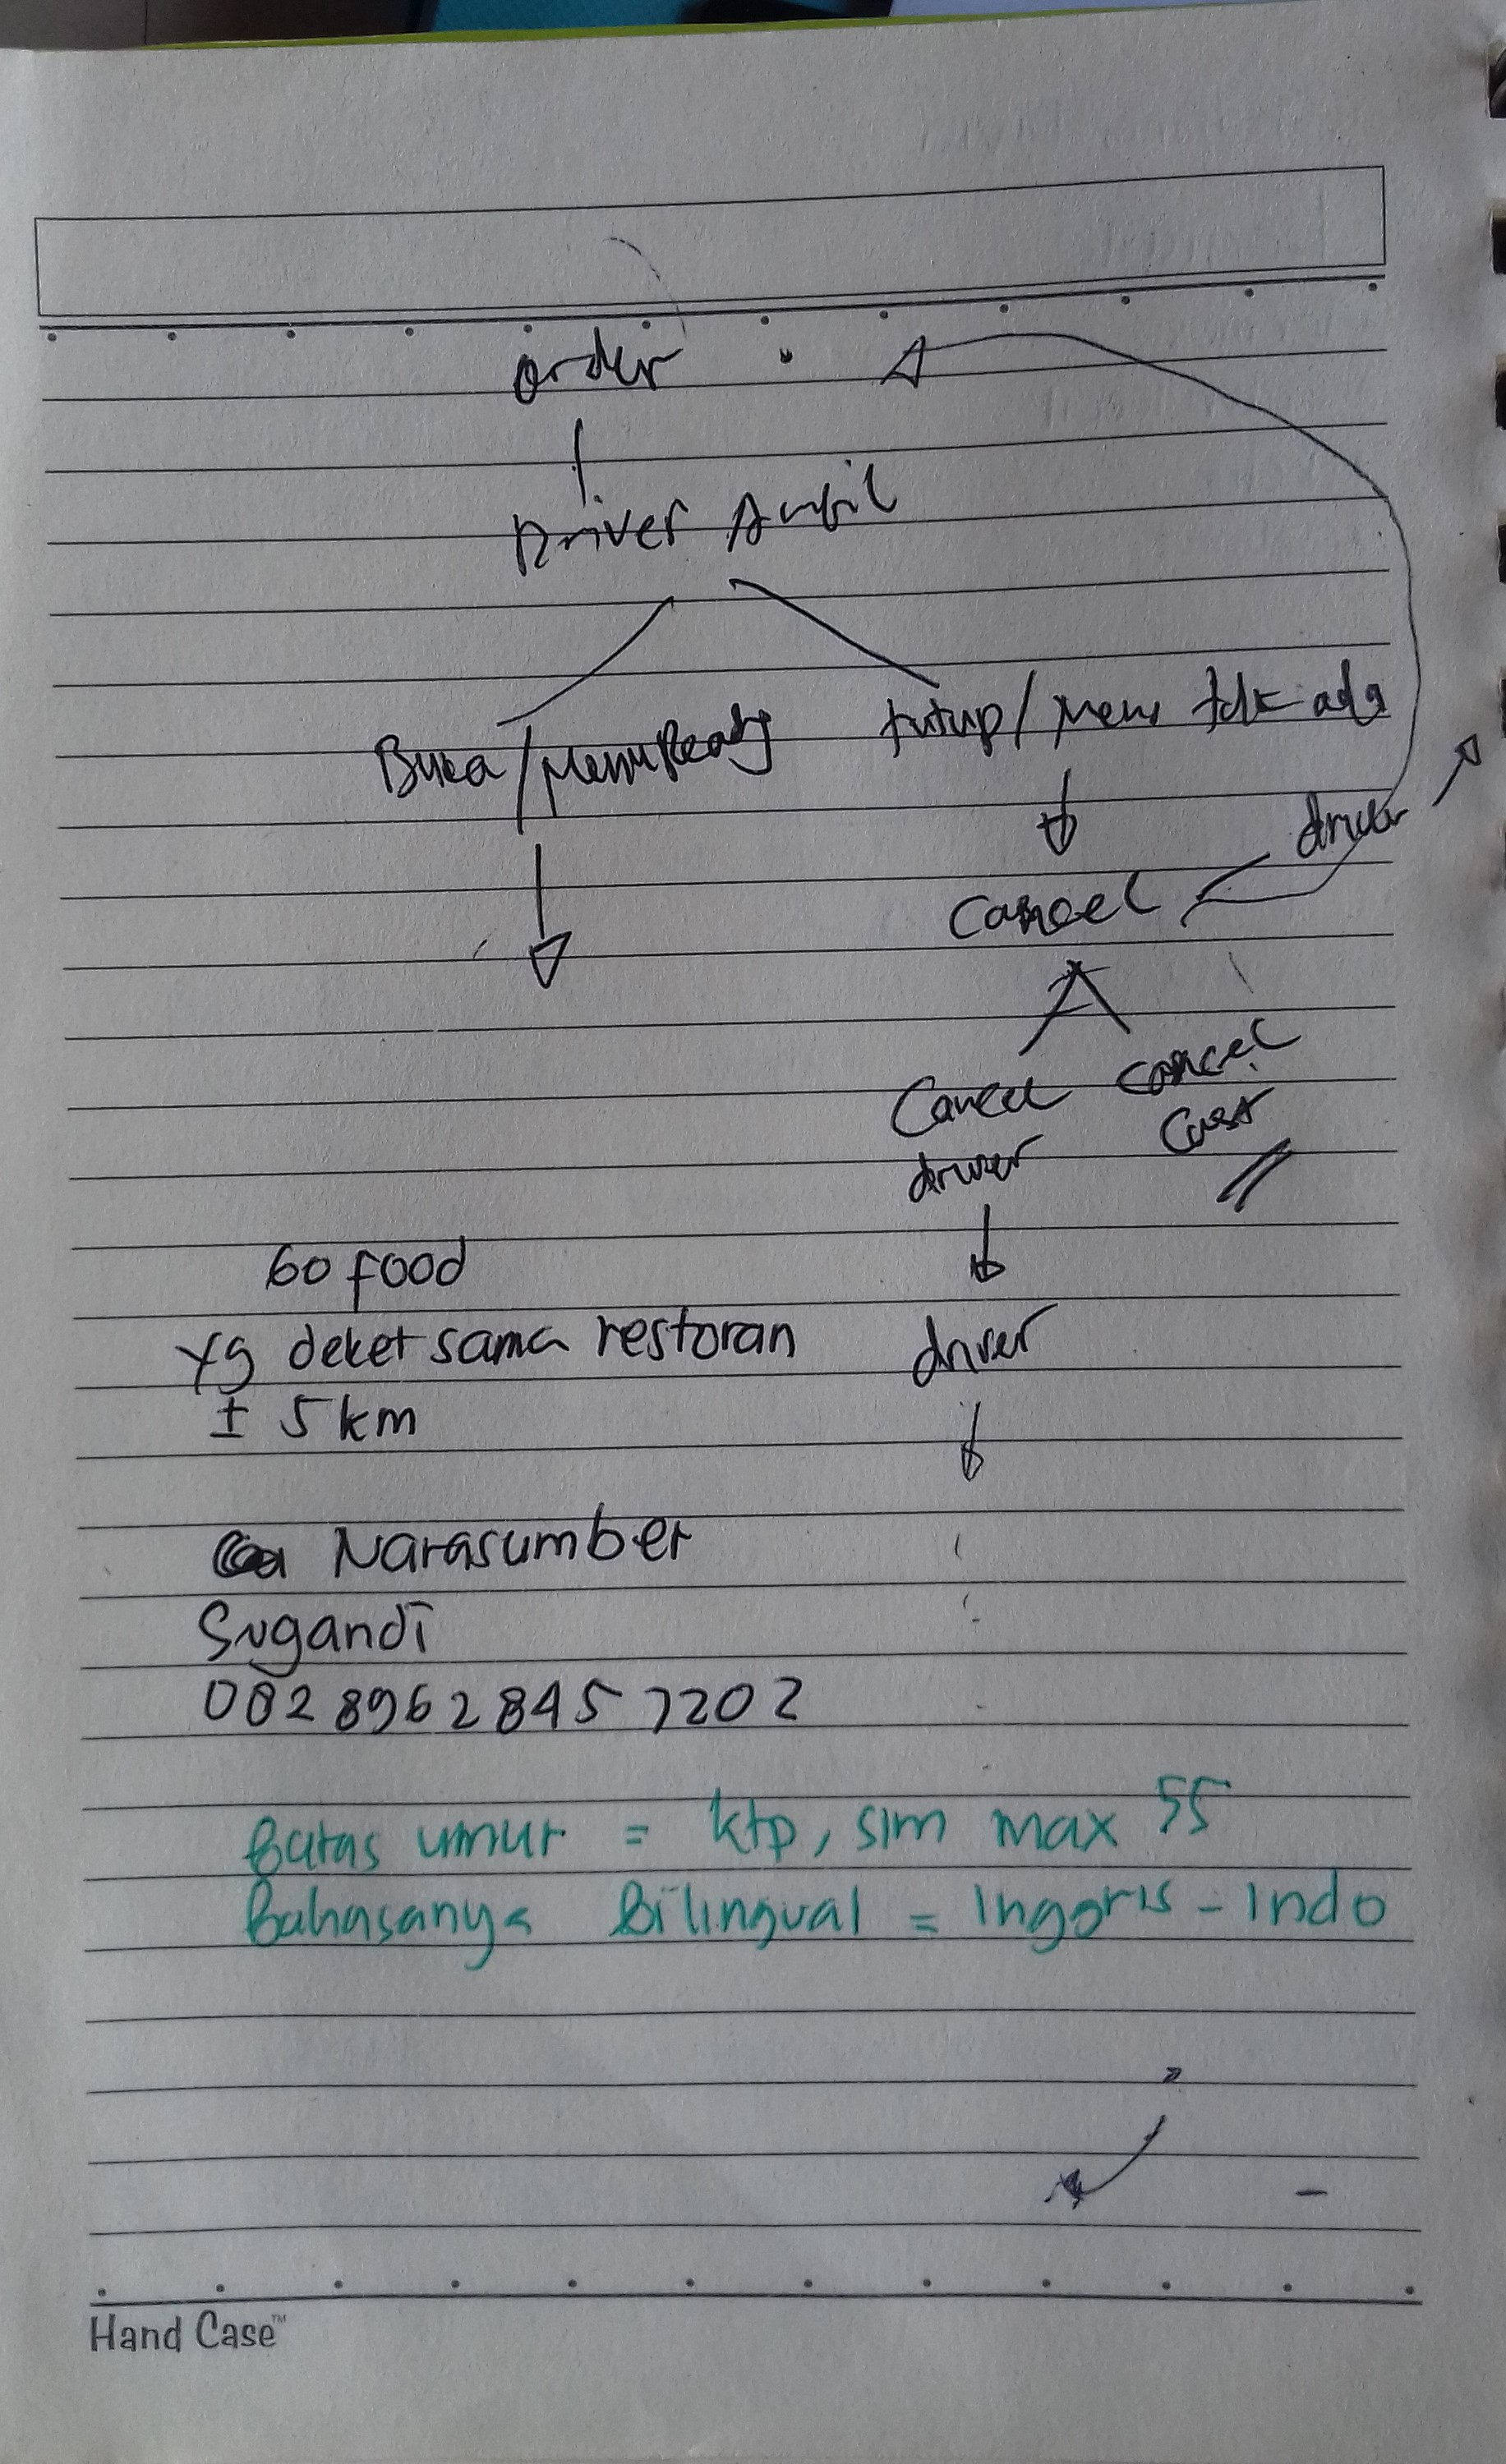 order
Driver Ambil
Buka/Menu Ready
tutup/Menu tdk ada
driver
Cancel
Cancel cancel
driver Cust
Go food
driver
yg deket sama restoran
± 5 km
Narasumber
Sugandi
08289628457202
Batas umur = ktp, sim max 55
Bahasanya Bilingual = Inggris - Indo
Hand Case™